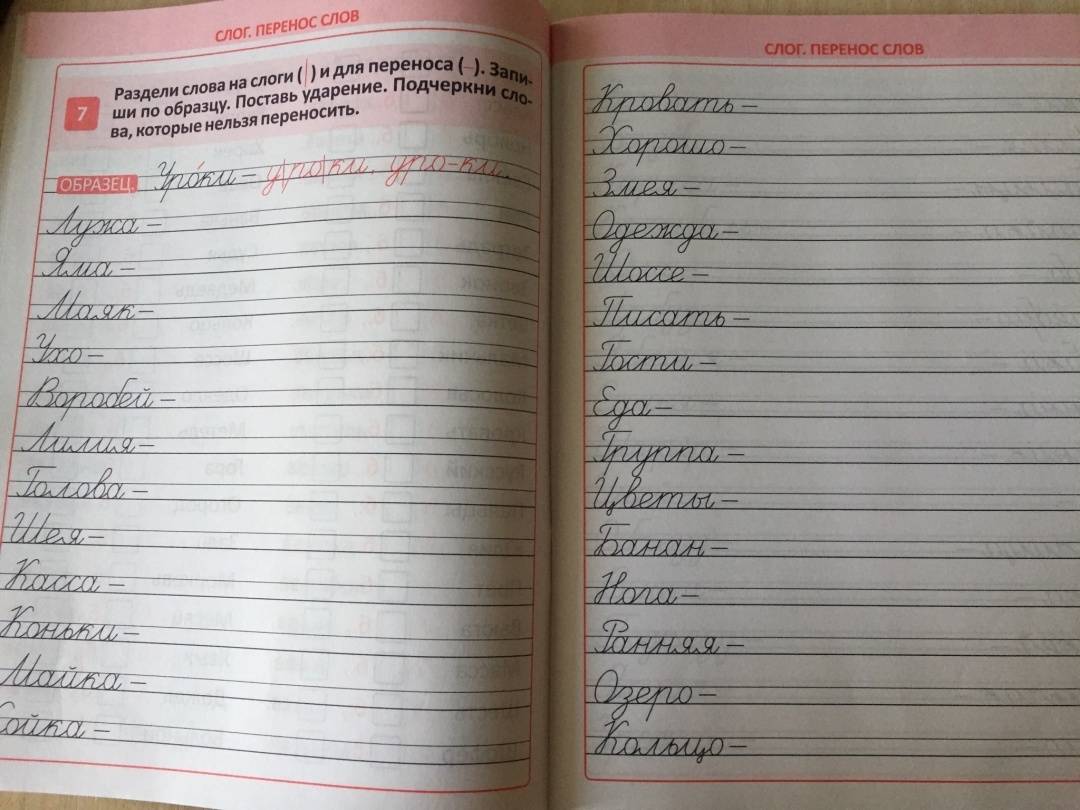 СЛОГ. ПЕРЕНОС СЛОВ
7
Раздели слова на слоги ( | ) и для переноса ( – ). Запи-
ши по образцу. Поставь ударение. Подчеркни сло-
ва, которые нельзя переносить.
ОБРАЗЕЦ. Уро́ки – у|ро|ки. уро-ки.
Лужа –
Яма –
Маяк –
Ухо –
Воробей –
Лилия –
Голова –
Шея –
Касса –
Коньки –
Майка –
ойка –
СЛОГ. ПЕРЕНОС СЛОВ
Кровать –
Хорошо –
Змея –
Одежда –
Шоссе –
Писать –
Гости –
Еда –
Группа –
Цветы –
Банан –
Нога –
Ранняя –
Озеро –
Кольцо –